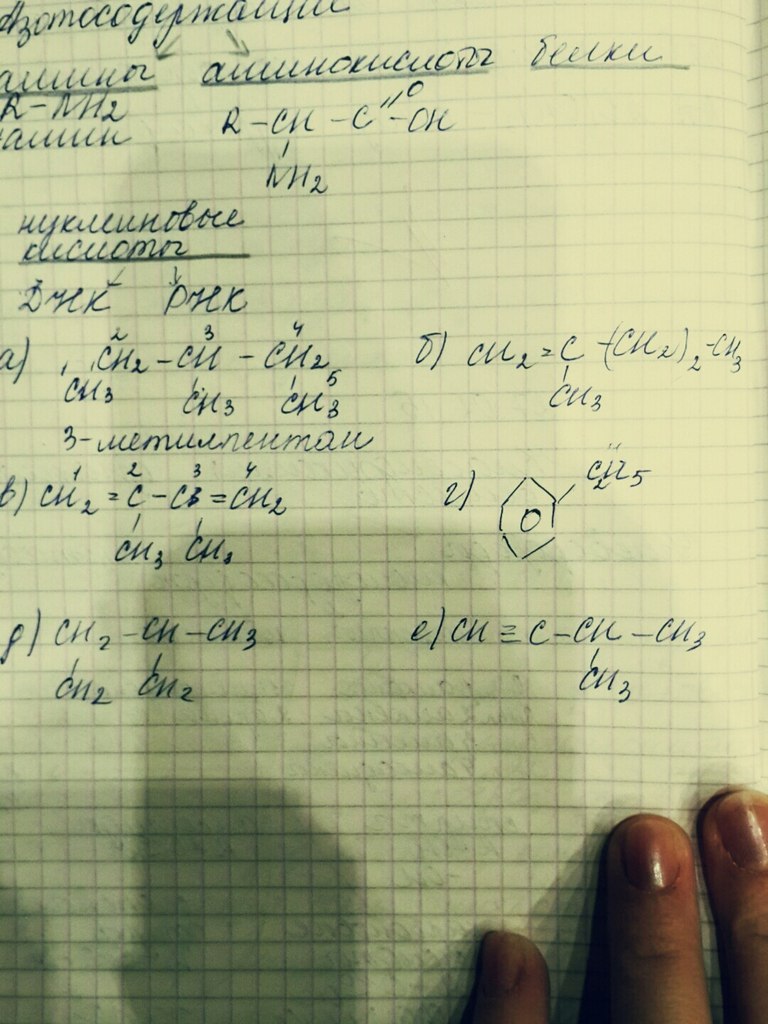 Азотосодержащие
амины аминокислоты белки
R-NH2
амин
R-CH-C//O-OH
NH2
нуклеиновые
кислоты
ДНК РНК
а) 2 3 4
CH2-CH-CH2
CH3 CH3 CH3 5
3-метилпентан
б) CH2=C-(CH2)2-CH3
CH3
в) 1 2 3 4
CH2=C-C=CH2
CH3 CH3
г) C2H5
д) CH2-CH-CH3
CH2 CH2
е) CH≡C-CH-CH3
CH3